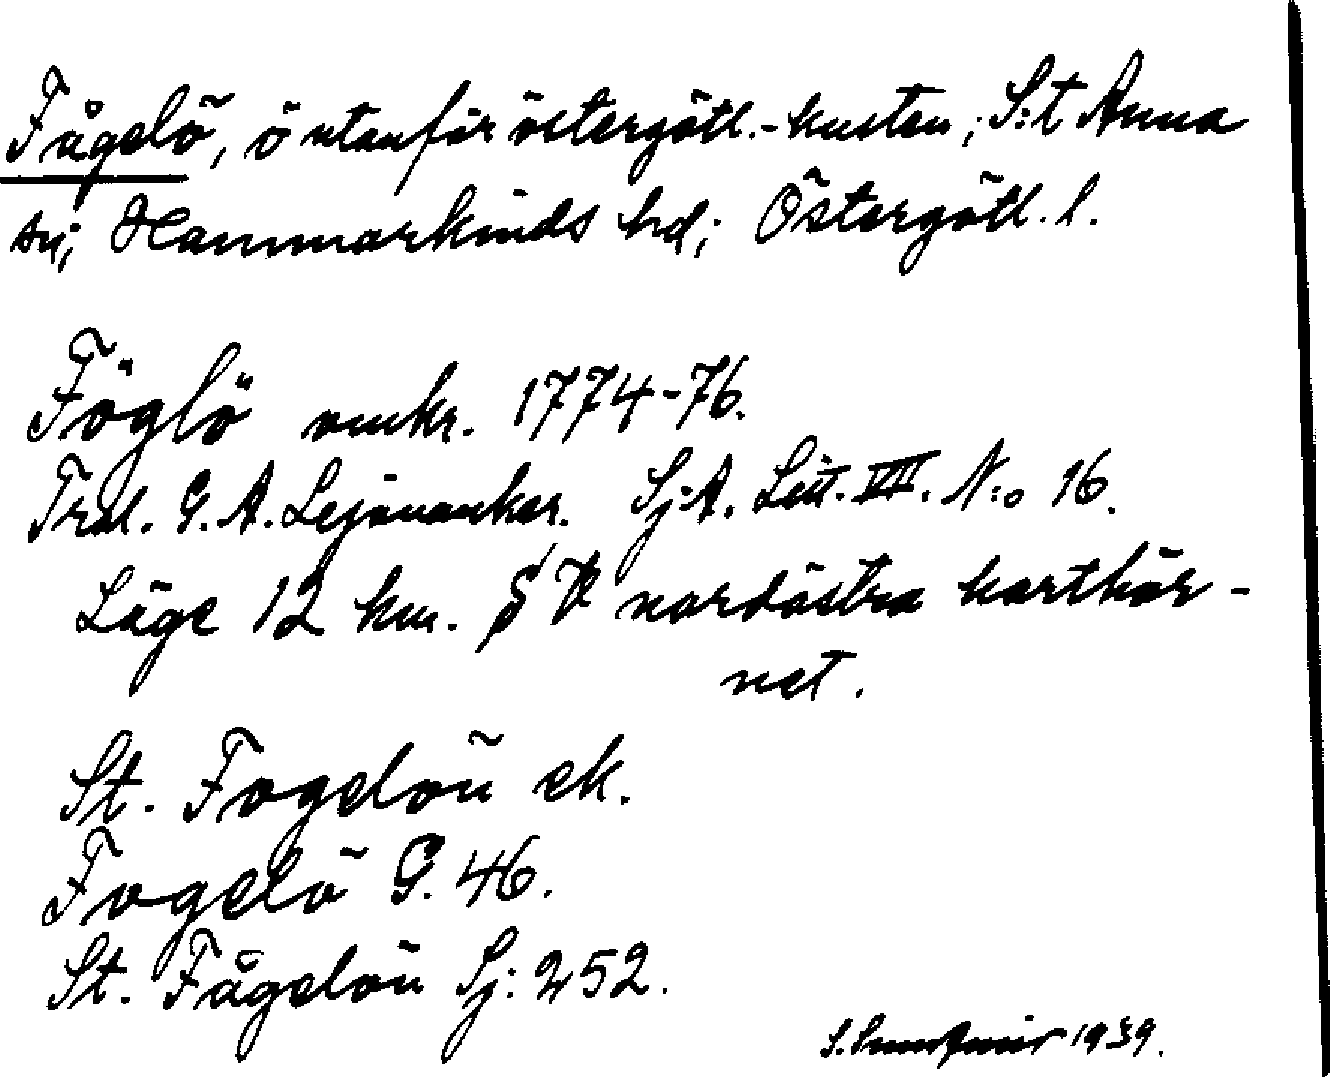 Fågelö, ö utanför östergötl.-kusten; S:t Anna
sn; Hammarkinds hd; Östergötl. l.
Föglö omkr. 1774-76.
Trol. G. A. Lejonanker. Sj:A. Litt. VIII. N:o 16.
Läge 12 km. S V nordöstra karthör-
net.
St. Fogelön ek.
Fogelö G. 46.
St. Fågelön Sj: 252.
1939.